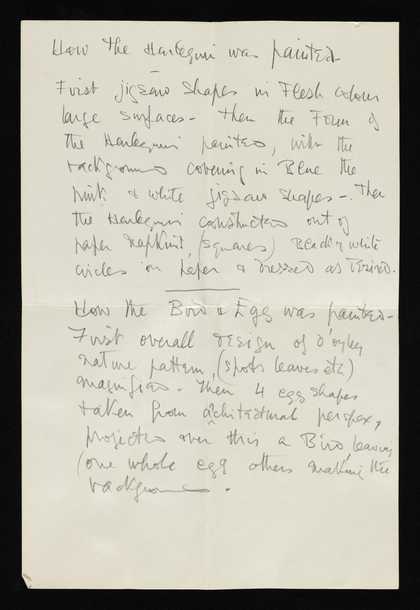 How the Harlequin was painted
First jigsaw shapes in Flesh colour
large surfaces - then the Form of
the Harlequin painted, with the
background covering in Blue the
pink & white jigsaw shapes - Then
the Harlequin constructed out of
paper napkins, (squares) Black & white
circles on paper & dressed as desired.
How the Bird & Egg was painted -
First overall design of
nature pattern, (spots leaves etc)
magnified. Then 4 egg shapes
taken from achitectural perspex,
projected over this a Bird, leaving
(one whole egg others making the
background.